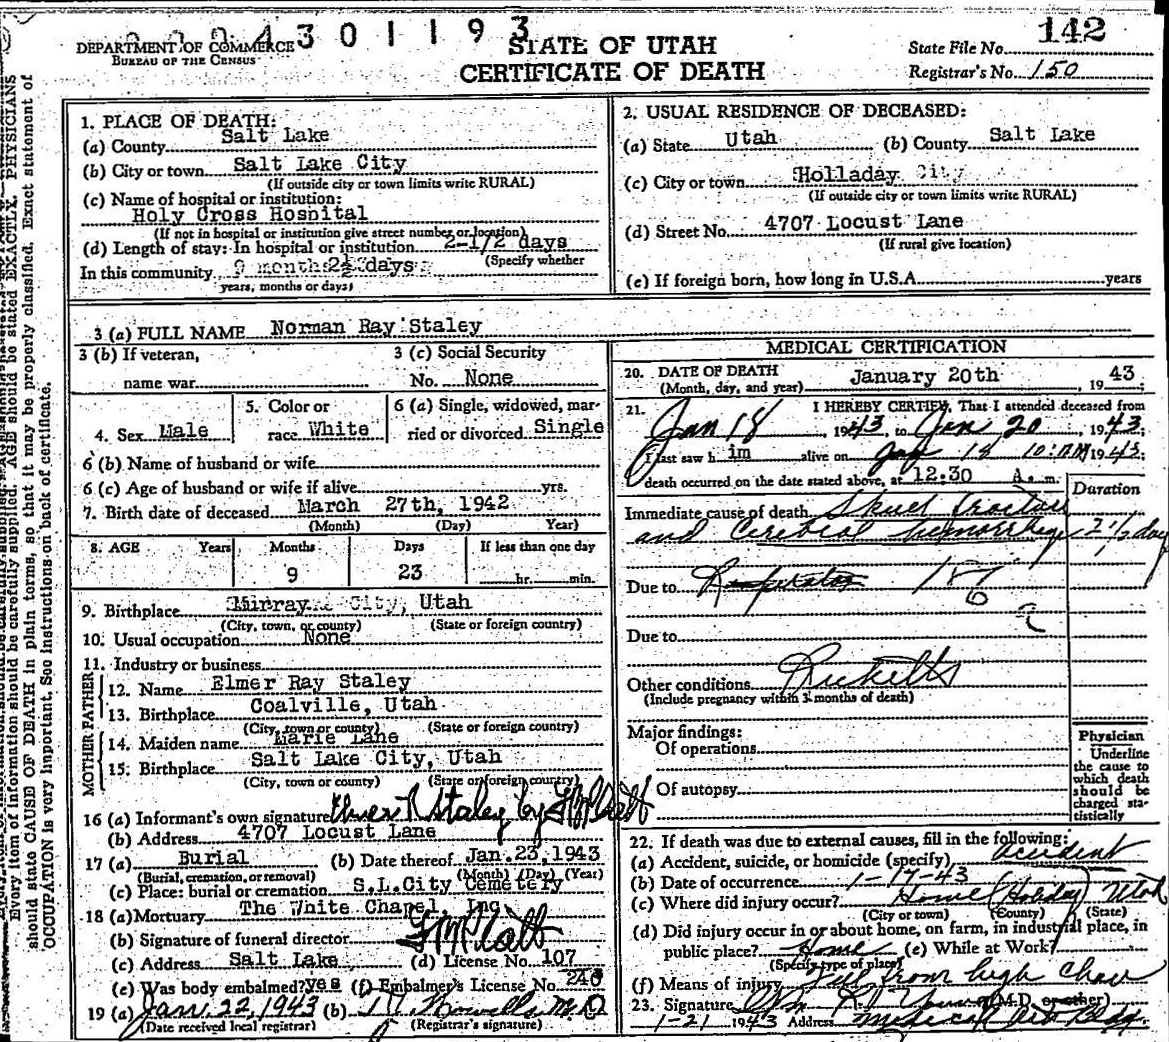 2 2 2 4 3 0 1 1 9 3
DEPARTMENT OF COMMERCE
BUREAU OF THE CENSUS
STATE OF UTAH
CERTIFICATE OF DEATH
142
State File No.
Registrar's No. 150
should be carefully supplied. AGE should be stated EXACTLY. PHYSICIANS
Every item of information should be carefully supplied.
should state CAUSE OF DEATH in plain terms, so that it may be properly classified. Exact statement of
OCCUPATION is very important. See instructions on back of certificate.
1. PLACE OF DEATH:
(a) County Salt Lake
(b) City or town Salt Lake City
(If outside city or town limits write RURAL)
(c) Name of hospital or institution:
Holy Cross Hospital
(If not in hospital or institution give street number or location)
(d) Length of stay: In hospital or institution 2-1/2 days
(Specify whether
In this community 9 months 23 days
years, months or days)
2. USUAL RESIDENCE OF DECEASED:
(a) State Utah (b) County Salt Lake
(c) City or town Holladay City
(If outside city or town limits write RURAL)
(d) Street No. 4707 Locust Lane
(If rural give location)
(e) If foreign born, how long in U.S.A. years
3 (a) FULL NAME Norman Ray Staley
3 (b) If veteran, name war
3 (c) Social Security No. None
4. Sex Male
5. Color or race White
6 (a) Single, widowed, married or divorced Single
6 (b) Name of husband or wife
6 (c) Age of husband or wife if alive yrs.
7. Birth date of deceased March 27th, 1942
(Month) (Day) Year)
8. AGE Years Months Days If less than one day
9 23 hr. min.
9. Birthplace Murray City, Utah
(City, town, or county) (State or foreign country)
10. Usual occupation None
11. Industry or business
FATHER
12. Name Elmer Ray Staley
13. Birthplace Coalville, Utah
(City, town or county) (State or foreign country)
MOTHER
14. Maiden name Marie Lane
15. Birthplace Salt Lake City, Utah
(City, town or county) (State or foreign country)
16 (a) Informant's own signature Elmer R Staley by G M Platt
(b) Address 4707 Locust Lane
17 (a) Burial (b) Date thereof Jan. 23, 1943
(Burial, cremation, or removal) (Month) (Day) (Year)
(c) Place: burial or cremation S.L.City Cemetery
18 (a) Mortuary The White Chapel, Inc
(b) Signature of funeral director G M Platt
(c) Address Salt Lake (d) License No. 107
(e) Was body embalmed? yes (f) Embalmer's License No. 240
19 (a) Jan. 22, 1943 (b) M.D.
(Date received local registrar) (Registrar's signature)
MEDICAL CERTIFICATION
20. DATE OF DEATH
(Month, day, and year) January 20th, 1943;
21. I HEREBY CERTIFY, That I attended deceased from
Jan 18, 1943, to Jan 20, 1943;
I last saw him alive on Jan 18 10:PM 1943;
death occurred on the date stated above, at 12:30 A. m.
Duration
Immediate cause of death Skull fracture
and Cerebral hemorrhage 2 1/2 day
Due to
Due to
Other conditions Ricketts
(Include pregnancy within 3 months of death)
Major findings:
Of operations
Of autopsy
Physician
Underline
the cause to
which death
should be
charged sta-
tistically
22. If death was due to external causes, fill in the following:
(a) Accident, suicide, or homicide (specify) Accident
(b) Date of occurrence 1-17-43
(c) Where did injury occur? Home (Holiday) Utah
(City or town) (County) (State)
(d) Did injury occur in or about home, on farm, in industrial place, in
public place? Home (e) While at Work?
(Specify type of place)
(f) Means of injury Fell from high chair
23. Signature (M.D. or other)
1-21 1943 Address Medical Arts Bldg.